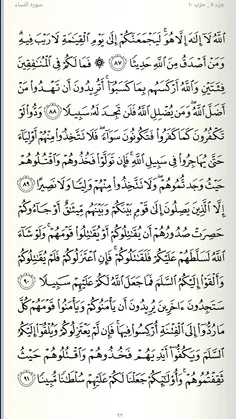 جزء ٥، حزب ١٠ سورة النساء
ٱللَّهُ لَآ إِلَٰهَ إِلَّا هُوَۚ لَيَجْمَعَنَّكُمْ إِلَىٰ يَوْمِ ٱلْقِيَٰمَةِ لَا رَيْبَ فِيهِۗ
وَمَنْ أَصْدَقُ مِنَ ٱللَّهِ حَدِيثًا ٨٧ ۞ فَمَا لَكُمْ فِى ٱلْمُنَٰفِقِينَ
فِئَتَيْنِ وَٱللَّهُ أَرْكَسَهُم بِمَا كَسَبُوٓا۟ۚ أَتُرِيدُونَ أَن تَهْدُوا۟ مَنْ
أَضَلَّ ٱللَّهُۖ وَمَن يُضْلِلِ ٱللَّهُ فَلَن تَجِدَ لَهُۥ سَبِيلًا ٨٨ وَدُّوا۟ لَوْ
تَكْفُرُونَ كَمَا كَفَرُوا۟ فَتَكُونُونَ سَوَآءًۖ فَلَا تَتَّخِذُوا۟ مِنْهُمْ أَوْلِيَآءَ
حَتَّىٰ يُهَاجِرُوا۟ فِى سَبِيلِ ٱللَّهِۚ فَإِن تَوَلَّوْا۟ فَخُذُوهُمْ وَٱقْتُلُوهُمْ
حَيْثُ وَجَدتُّمُوهُمْۖ وَلَا تَتَّخِذُوا۟ مِنْهُمْ وَلِيًّا وَلَا نَصِيرًا ٨٩
إِلَّا ٱلَّذِينَ يَصِلُونَ إِلَىٰ قَوْمٍۭ بَيْنَكُمْ وَبَيْنَهُم مِّيثَٰقٌ أَوْ جَآءُوكُمْ
حَصِرَتْ صُدُورُهُمْ أَن يُقَٰتِلُوكُمْ أَوْ يُقَٰتِلُوا۟ قَوْمَهُمْۚ وَلَوْ شَآءَ
ٱللَّهُ لَسَلَّطَهُمْ عَلَيْكُمْ فَلَقَٰتَلُوكُمْۚ فَإِنِ ٱعْتَزَلُوكُمْ فَلَمْ يُقَٰتِلُوكُمْ
وَأَلْقَوْا۟ إِلَيْكُمُ ٱلسَّلَمَ فَمَا جَعَلَ ٱللَّهُ لَكُمْ عَلَيْهِمْ سَبِيلًا ٩٠
سَتَجِدُونَ ءَاخَرِينَ يُرِيدُونَ أَن يَأْمَنُوكُمْ وَيَأْمَنُوا۟ قَوْمَهُمْ كُلَّ
مَا رُدُّوٓا۟ إِلَى ٱلْفِتْنَةِ أُرْكِسُوا۟ فِيهَاۚ فَإِن لَّمْ يَعْتَزِلُوكُمْ وَيُلْقُوٓا۟ إِلَيْكُمُ
ٱلسَّلَمَ وَيَكُفُّوٓا۟ أَيْدِيَهُمْ فَخُذُوهُمْ وَٱقْتُلُوهُمْ حَيْثُ
ثَقِفْتُمُوهُمْۚ وَأُو۟لَٰٓئِكُمْ جَعَلْنَا لَكُمْ عَلَيْهِمْ سُلْطَٰنًا مُّبِينًا ٩١
٩٢